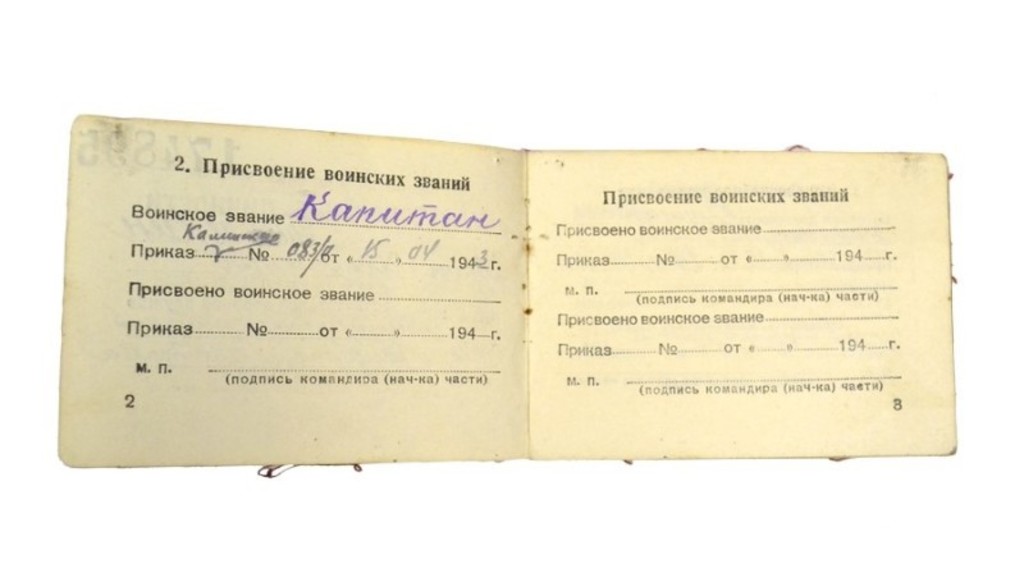 2. Присвоение воинских званий
Воинское звание Капитан
Приказ № 083/ от « 15 » 04 1943 г.
Присвоено воинское звание
Приказ № от « » 194 г.
м. п.
(подпись командира (нач-ка) части)
2
Присвоение воинских званий
Присвоено воинское звание
Приказ № от « » 194 г.
м. п.
(подпись командира (нач-ка) части)
Присвоено воинское звание
Приказ № от « » 194 г.
м. п.
(подпись командира (нач-ка) части)
3